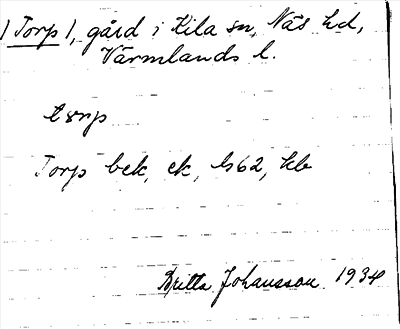 /Torp/, gård i Kila sn, Näs hd,
Värmlands l.
tɷrp
Torp bek, ek, ls62, kb
Britta Johansson 1934